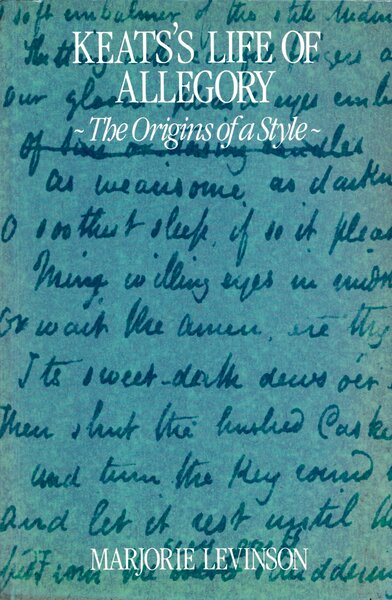 soft embalmer of the still midni
KEATS'S LIFE OF
ALLEGORY
our eyes emb
~The Origins of a Style~
of
as wearisome as darkn
O soothest sleep, if so it pleas
Mine willing eyes in midst
Or wait the amen, ere thy
Its sweet-death dews o'er
Then shut the hushed Caske
and turn the Key round
and let it rest until
MARJORIE LEVINSON
From the